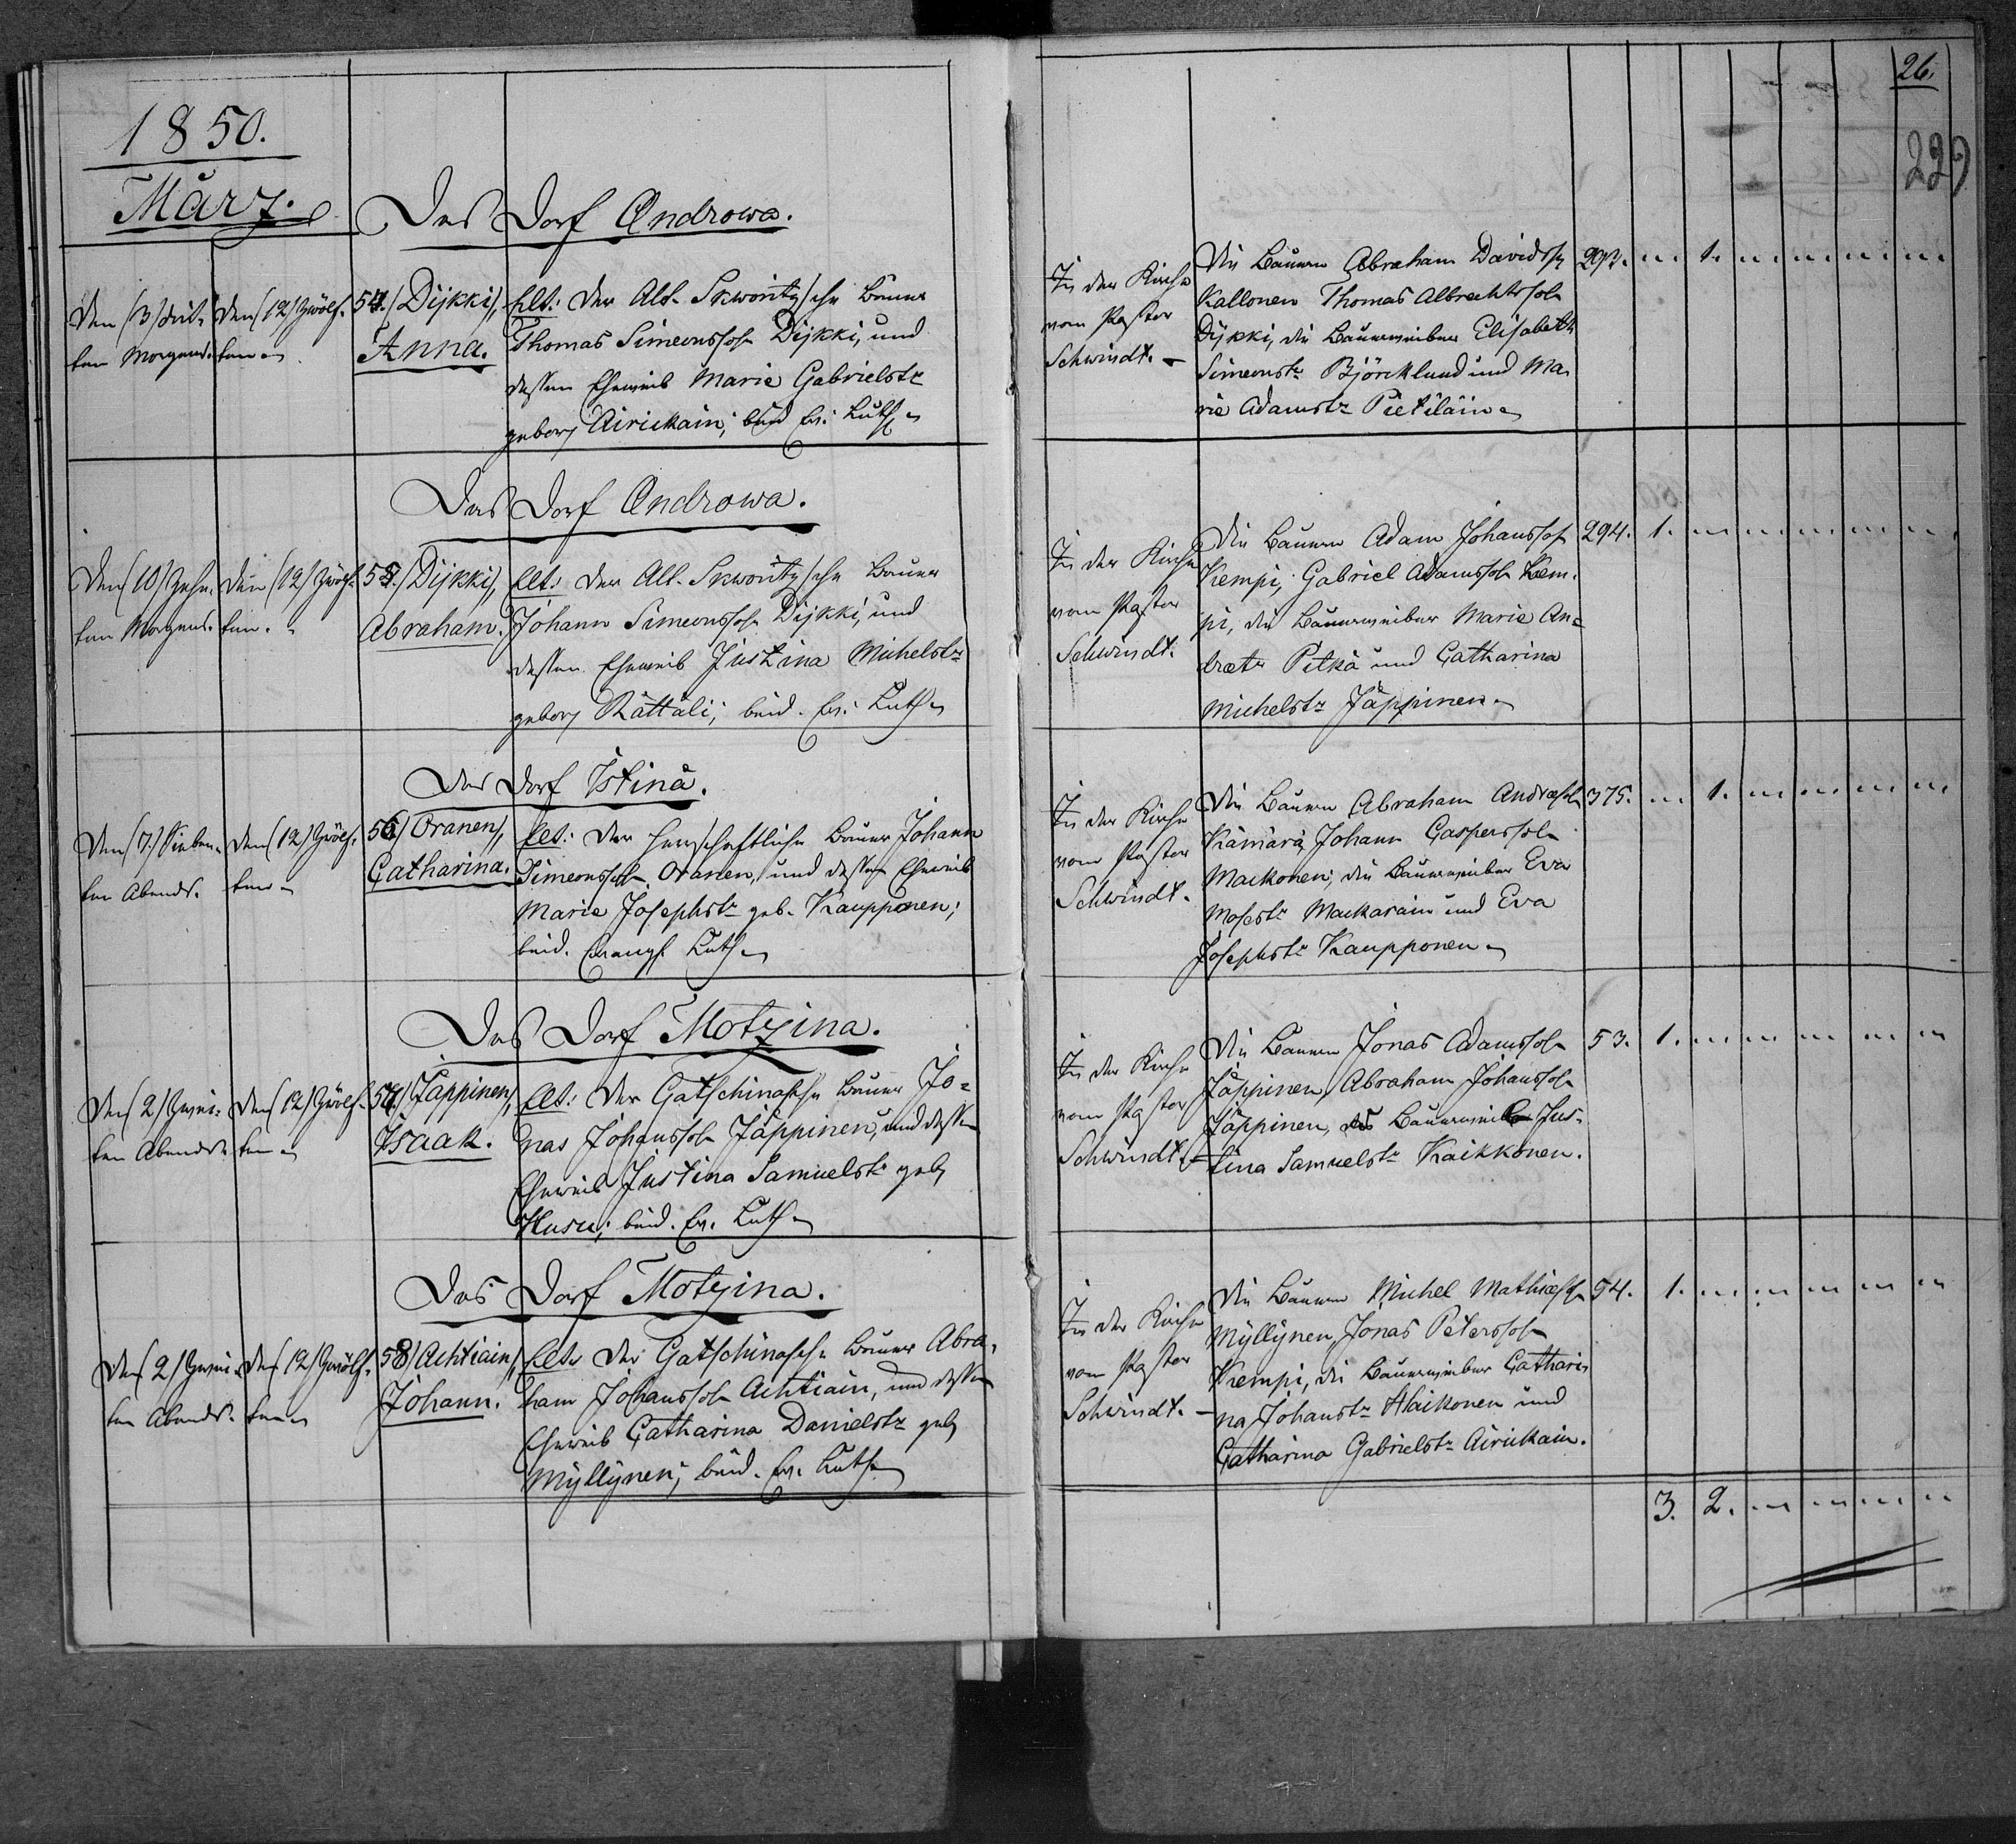 1850.
März.
Das Dorf Androwa.
Den (3) drit-
ten Morgens.
Den (12) zwölf-
ten
54./ Dijkki,
Anna.
Elt.: Der Alt-Skworitzsche Bauer
Thomas Simeonssohn Dijkki, und
dessen Eheweib Marie Gabrielstr
geborn Airickain; beid. Ev. Luth.
Das Dorf Androwa.
Den (10) zehn-
ten Morgens.
Den (12) zwölf-
ten.
55./ Dijkki,
Abraham.
Elt.: Der Alt-Skworitzsche Bauer
Johann Simeonssohn Dijkki, und
dessen Eheweib Justina Michelstr
geborn Rättäli; beid. Ev. Luth.
Das Dorf Istinä.
Den (7) Sieben-
ten Abends.
Den (12) zwölf-
ten
56/ Oranen,
Catharina.
Elt.: Der herrschaftliche Bauer Johann
Simeonssohn Oranen, und dessen Eheweib
Marie Josephstr geb. Kaupponen;
beid. Evangl. Luth.
Das Dorf Motzina.
Den (2) zwei-
ten Abends.
Den (12) zwölf-
ten
57/ Jäppinen,
Isaak.
Elt.: Der Gatschinasche Bauer Jo-
nas Johanssohn Jäppinen, und dessen
Eheweib Justina Samuelstr geb
Husu; beid. Ev. Luth.
Das Dorf Motzina.
Den (2) zwei-
ten Abends.
Den (12) zwölf-
ten
58/ Achtiain,
Johann.
Elt. Der Gatschinasche Bauer Abra-
ham Johanssohn Achtiain, und dessen
Eheweib Catharina Danielstr geb
Myllynen; beid. Ev. Luth.
26.
229
In der Kirche
vom Pastor
Schwindt.
Die Bauern Abraham Davidssn
Kallonen Thomas Albrechtssohn
Dijkki, die Bauerweiber Elisabeth
Simeonstr Björcklund und Ma-
rie Adamstr Pietiläin
293. " 1. " " " " "
In der Kirche
vom Pastor
Schwindt.
Die Bauern Adam Johanssohn
Kempi, Gabriel Adamssohn Kem-
pi, die Bauerweiber Marie An-
dreetr Pitkä und Catharina
Michelstr Jäppinen
294. 1. " " " " " "
In der Kirche
vom Pastor
Schwindt.
Die Bauern Abraham Andreessohn
Kämärä, Johann Casperssohn
Mackonen; die Bauerweiber Eva
Mosestr Mackarain und Eva
Josephstr Kaupponen
375. " 1. " " " " "
In der Kirche
vom Pastor
Schwindt.
Die Bauern Jonas Adamssohn
Jäppinen, Abraham Johanssohn
Jäppinen, das Bauerweib Jus-
tina Samuelstr Kaikkonen.
53. 1. " " " " " "
In der Kirche
vom Pastor
Schwindt.
Die Bauern Michel Mathiessohn
Myllynen, Jonas Peterssohn
Kempi, die Bauerweiber Cathari-
na Johanstr Haikonen und
Catharina Gabrielstr Airickain.
54. 1. " " " " " "
3. 2. " " " " "